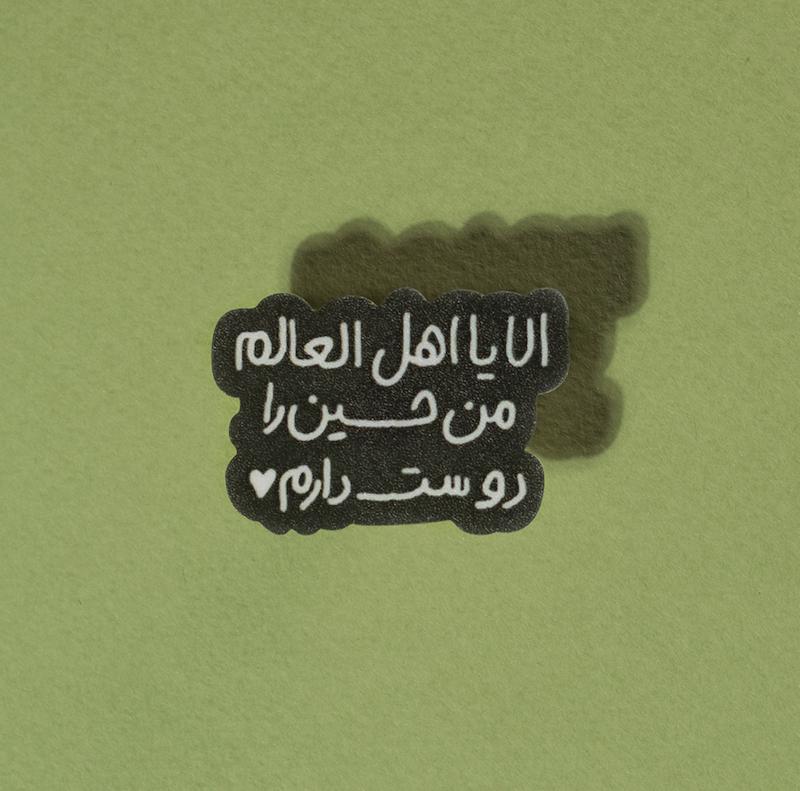 الا یا اهل العالم
من حسین را
دوست دارم♥